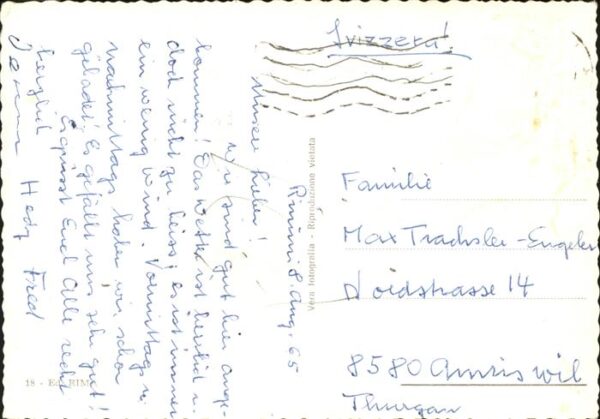 Rimini 8. Aug. 65
Unsere Lieben!
Wir sind gut hier ange-
kommen! Das Wetter ist herrlich u.
doch nicht zu heiss, es ist immer
ein wenig Wind. Vormittags u.
nachmittags haben wir schon
gebadet! Es gefällt uns sehr gut!
Es grüsst Euch Alle recht
herzlich
Hedy Fred
Svizzera!
Familie
Max Trachsler-Engeler
8580 Amriswil
Thurgau
Vera fotografia - Riproduzione vietata
18 - Ed. RIM